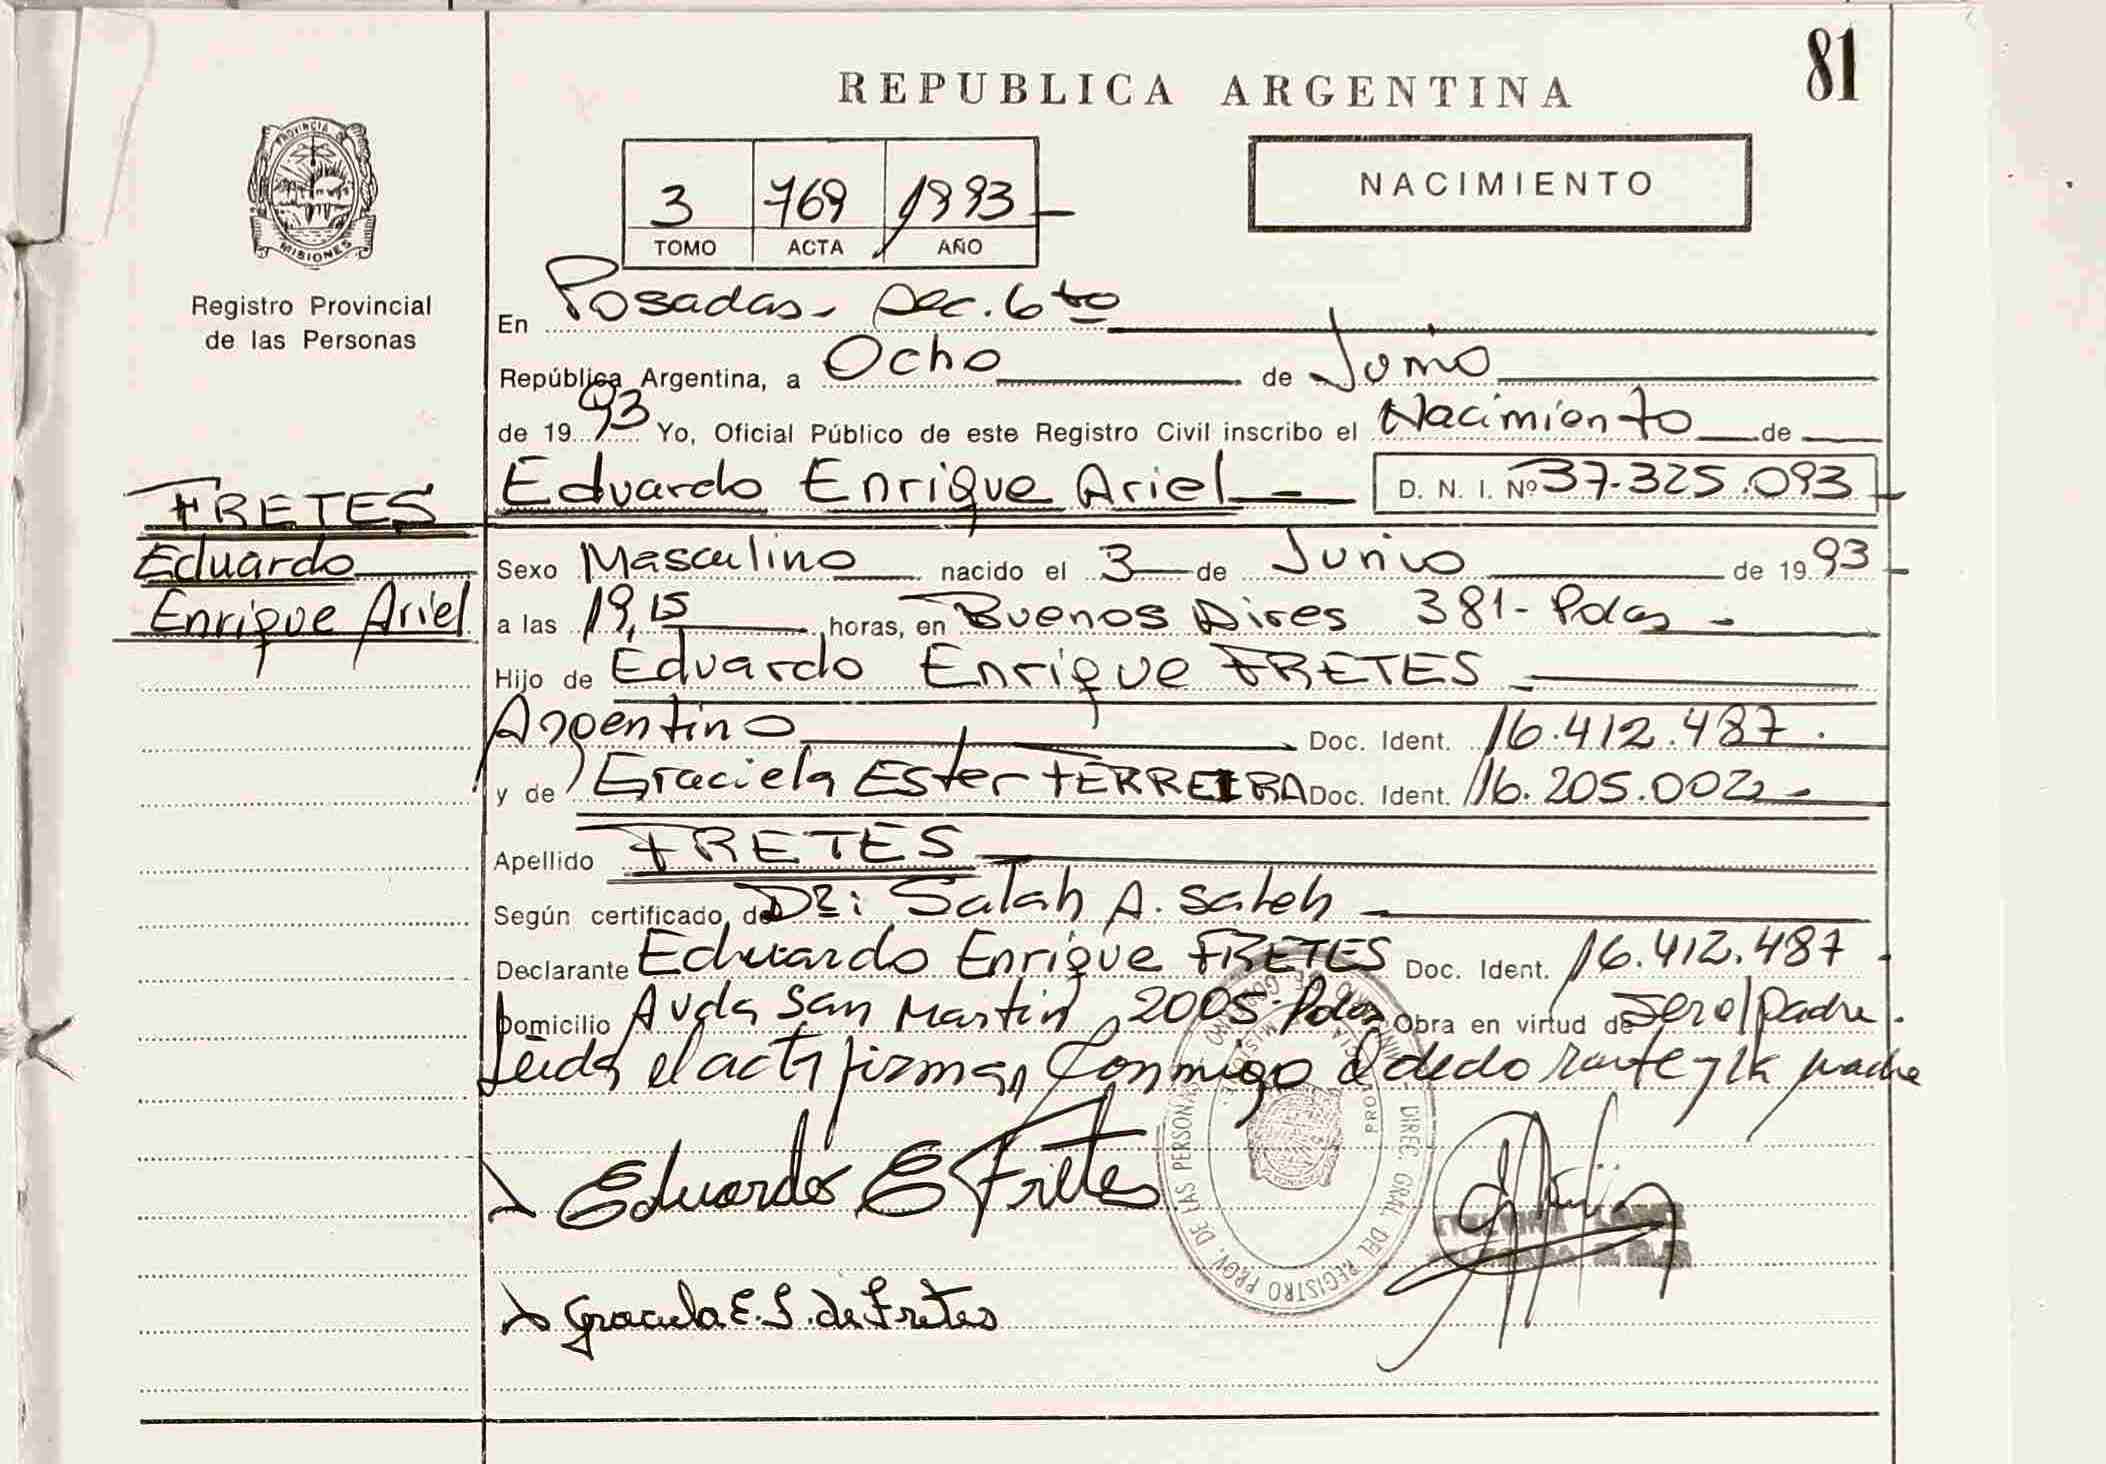 81
REPUBLICA ARGENTINA
PROVINCIA DE
MISIONES
Registro Provincial
de las Personas
3 769 1993
TOMO ACTA AÑO
NACIMIENTO
En Posadas - Sec. 6 to
República Argentina, a Ocho de Junio
de 1993 Yo, Oficial Público de este Registro Civil inscribo el Nacimiento de
Eduardo Enrique Ariel D. N. I. Nº 37.325.093
FRETES
Eduardo
Enrique Ariel
Sexo Masculino nacido el 3 de Junio de 1993
a las 19,15 horas, en Buenos Aires 381 - Pdas -
Hijo de Eduardo Enrique FRETES
Argentino Doc. Ident. 16.412.487.
y de Graciela Ester FERREIRA Doc. Ident. 16.205.002 -
Apellido FRETES
Según certificado de Dr: Salah A. Saleh
Declarante Eduardo Enrique FRETES Doc. Ident. 16.412.487
Domicilio Avda San Martin 2005 - Pdas Obra en virtud de Ser el padre.
Leida el acta firman conmigo el declarante y la madre
Eduardo E Fretes
Graciela E. F. de Fretes
REGISTRO PROV. DE LAS PERSONAS
DIREC. GRAL. DEL